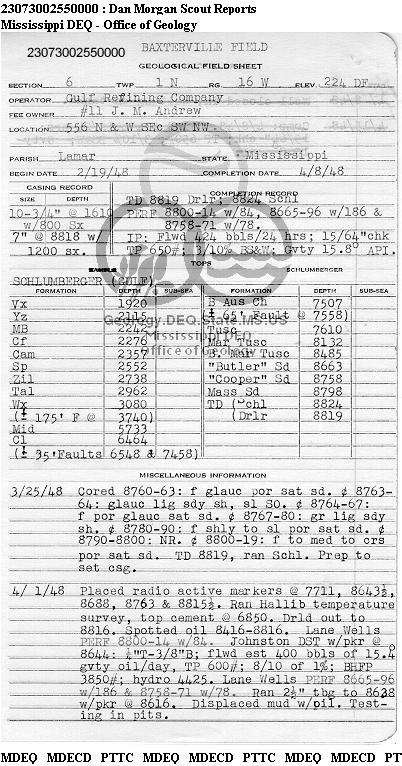 23073002550000 : Dan Morgan Scout Reports
Mississippi DEQ - Office of Geology
23073002550000 BAXTERVILLE FIELD
GEOLOGICAL FIELD SHEET
SECTION 6 TWP 1 N RG. 16 W ELEV. 224 DF
OPERATOR Gulf Refining Company
FEE OWNER #11 J. M. Andrew
LOCATION 556 N & W SEc SW NW
PARISH Lamar STATE Mississippi
BEGIN DATE 2/19/48 COMPLETION DATE 4/8/48
CASING RECORD COMPLETION RECORD
SIZE DEPTH TD 8819 Drlr; 8824 Schl
10-3/4" @ 1610 PERF 8800-14 w/84, 8665-96 w/186 &
w/800 Sx 8758-71 w/78.
7" @ 8818 w/ IP: Flwd 424 bbls/24 hrs; 15/64"chk
1200 sx. TP 650#; 3/10% BS&W; Gvty 15.8° API.
TOPS
SAMPLE SCHLUMBERGER
SCHLUMBERGER (GULF)
FORMATION DEPTH SUB-SEA FORMATION DEPTH SUB-SEA
Vx 1920 B Aus Ch 7507
Yz 2115 (± 65' Fault @ 7558)
MB 2242 Tusc 7610
Cf 2276 Mar Tusc 8132
Cam 2357 B. Mar Tusc 8485
Sp 2552 "Butler" Sd 8663
Zil 2738 "Cooper" Sd 8758
Tal 2962 Mass Sd 8798
Wx 3080 TD (Schl 8824
(± 175' F @ 3740) (Drlr 8819
Mid 5733
Cl 6464
(± 35'Faults 6548 & 7458)
Geology.DEQ.State.MS.US
Mississippi DEQ
Office of Geology
MISCELLANEOUS INFORMATION
3/25/48 Cored 8760-63: f glauc por sat sd. ¢ 8763-
64: glauc lig sdy sh, sl SO. ¢ 8764-67:
f por glauc sat sd. ¢ 8767-80: gr lig sdy
sh. ¢ 8780-90: f shly to sl por sat sd. ¢
8790-8800: NR. ¢ 8800-19: f to med to crs
por sat sd. TD 8819, ran Schl. Prep to
set csg.
4/ 1/48 Placed radio active markers @ 7711, 8643½,
8688, 8763 & 8815½. Ran Hallib temperature
survey, top cement @ 6850. Drld out to
8816. Spotted oil 8416-8816. Lane Wells
PERF 8800-14 w/84. Johnston DST w/pkr @
8644: ¼"T-3/8"B; flwd est 400 bbls of 15.4°
gvty oil/day, TP 600#; 8/10 of 1%; BHFP
3850#; hydro 4425. Lane Wells PERF 8665-96
w/186 & 8758-71 w/78. Ran 2½" tbg to 8638
w/pkr @ 8616. Displaced mud w/oil. Test-
ing in pits.
MDEQ MDECD PTTC MDEQ MDECD PTTC MDEQ MDECD PT